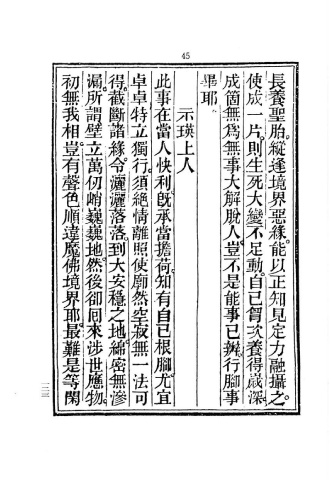 45
長養聖胎縱逢境界惡緣能以正知見定力融攝之
使成一片則生死大變不足動自己胷次養得歲深
成箇無為無事大解脫人豈不是能事已辦行脚事
畢耶
示瑛上人
此事在當人快利旣承當擔荷知有自己根脚尤宜
卓卓特立獨行須絕情離照使廓然空寂無一法可
得截斷諸緣令灑灑落落到大安穩之地綿密無滲
漏所謂壁立萬仞峭巍巍地然後却囘來涉世應物
初無我相豈有聲色順違魔佛境界耶最難是等閑